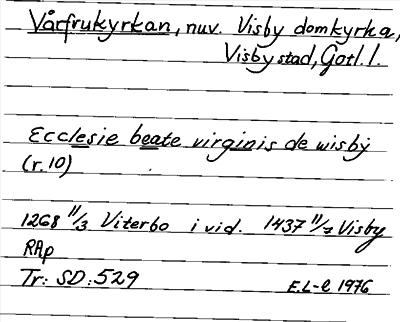 Vårfrukyrkan, nuv. Visby domkyrka,
Visby stad, Gotl. l.
Ecclesie beate virginis de wisbÿ
(r. 10)
1268 11/3 Viterbo i vid. 1437 11/7 Visby
RAp
Tr: SD:529
E.L-e 1976